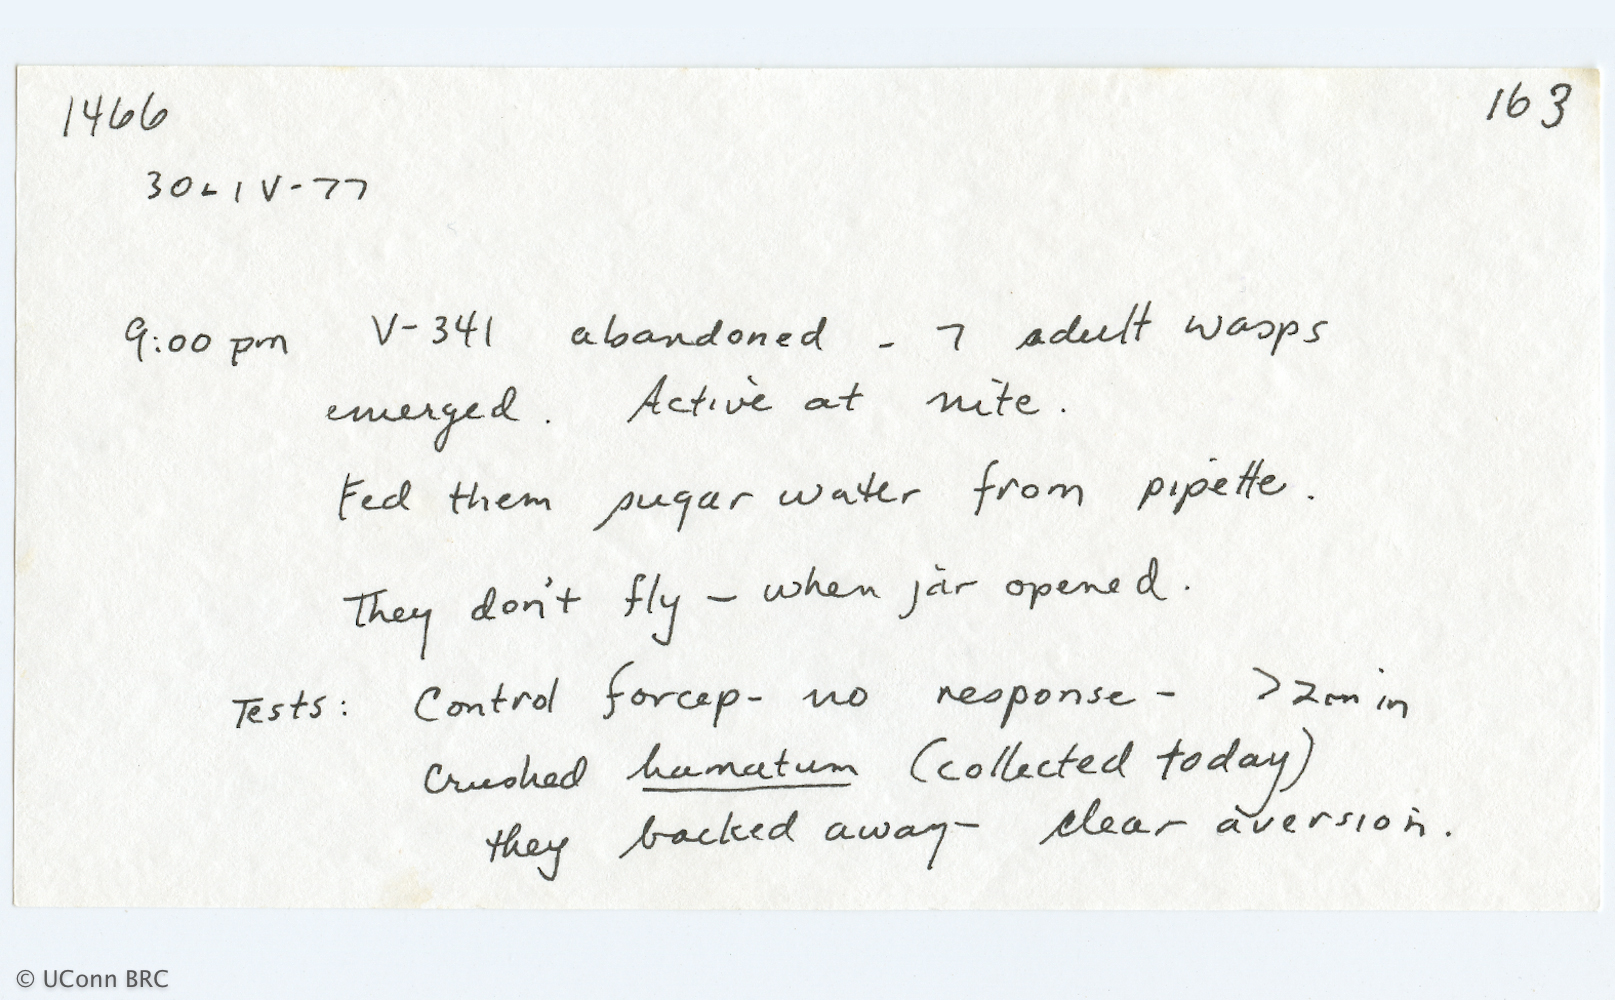 1466 163
30-IV-77
9:00 pm V-341 abandoned - 7 adult wasps
emerged. Active at nite.
Fed them sugar water from pipette.
They don't fly - when jar opened.
Tests: Control forcep - no response - >2min
crushed hamatum (collected today)
they backed away - clear aversion.
© UConn BRC